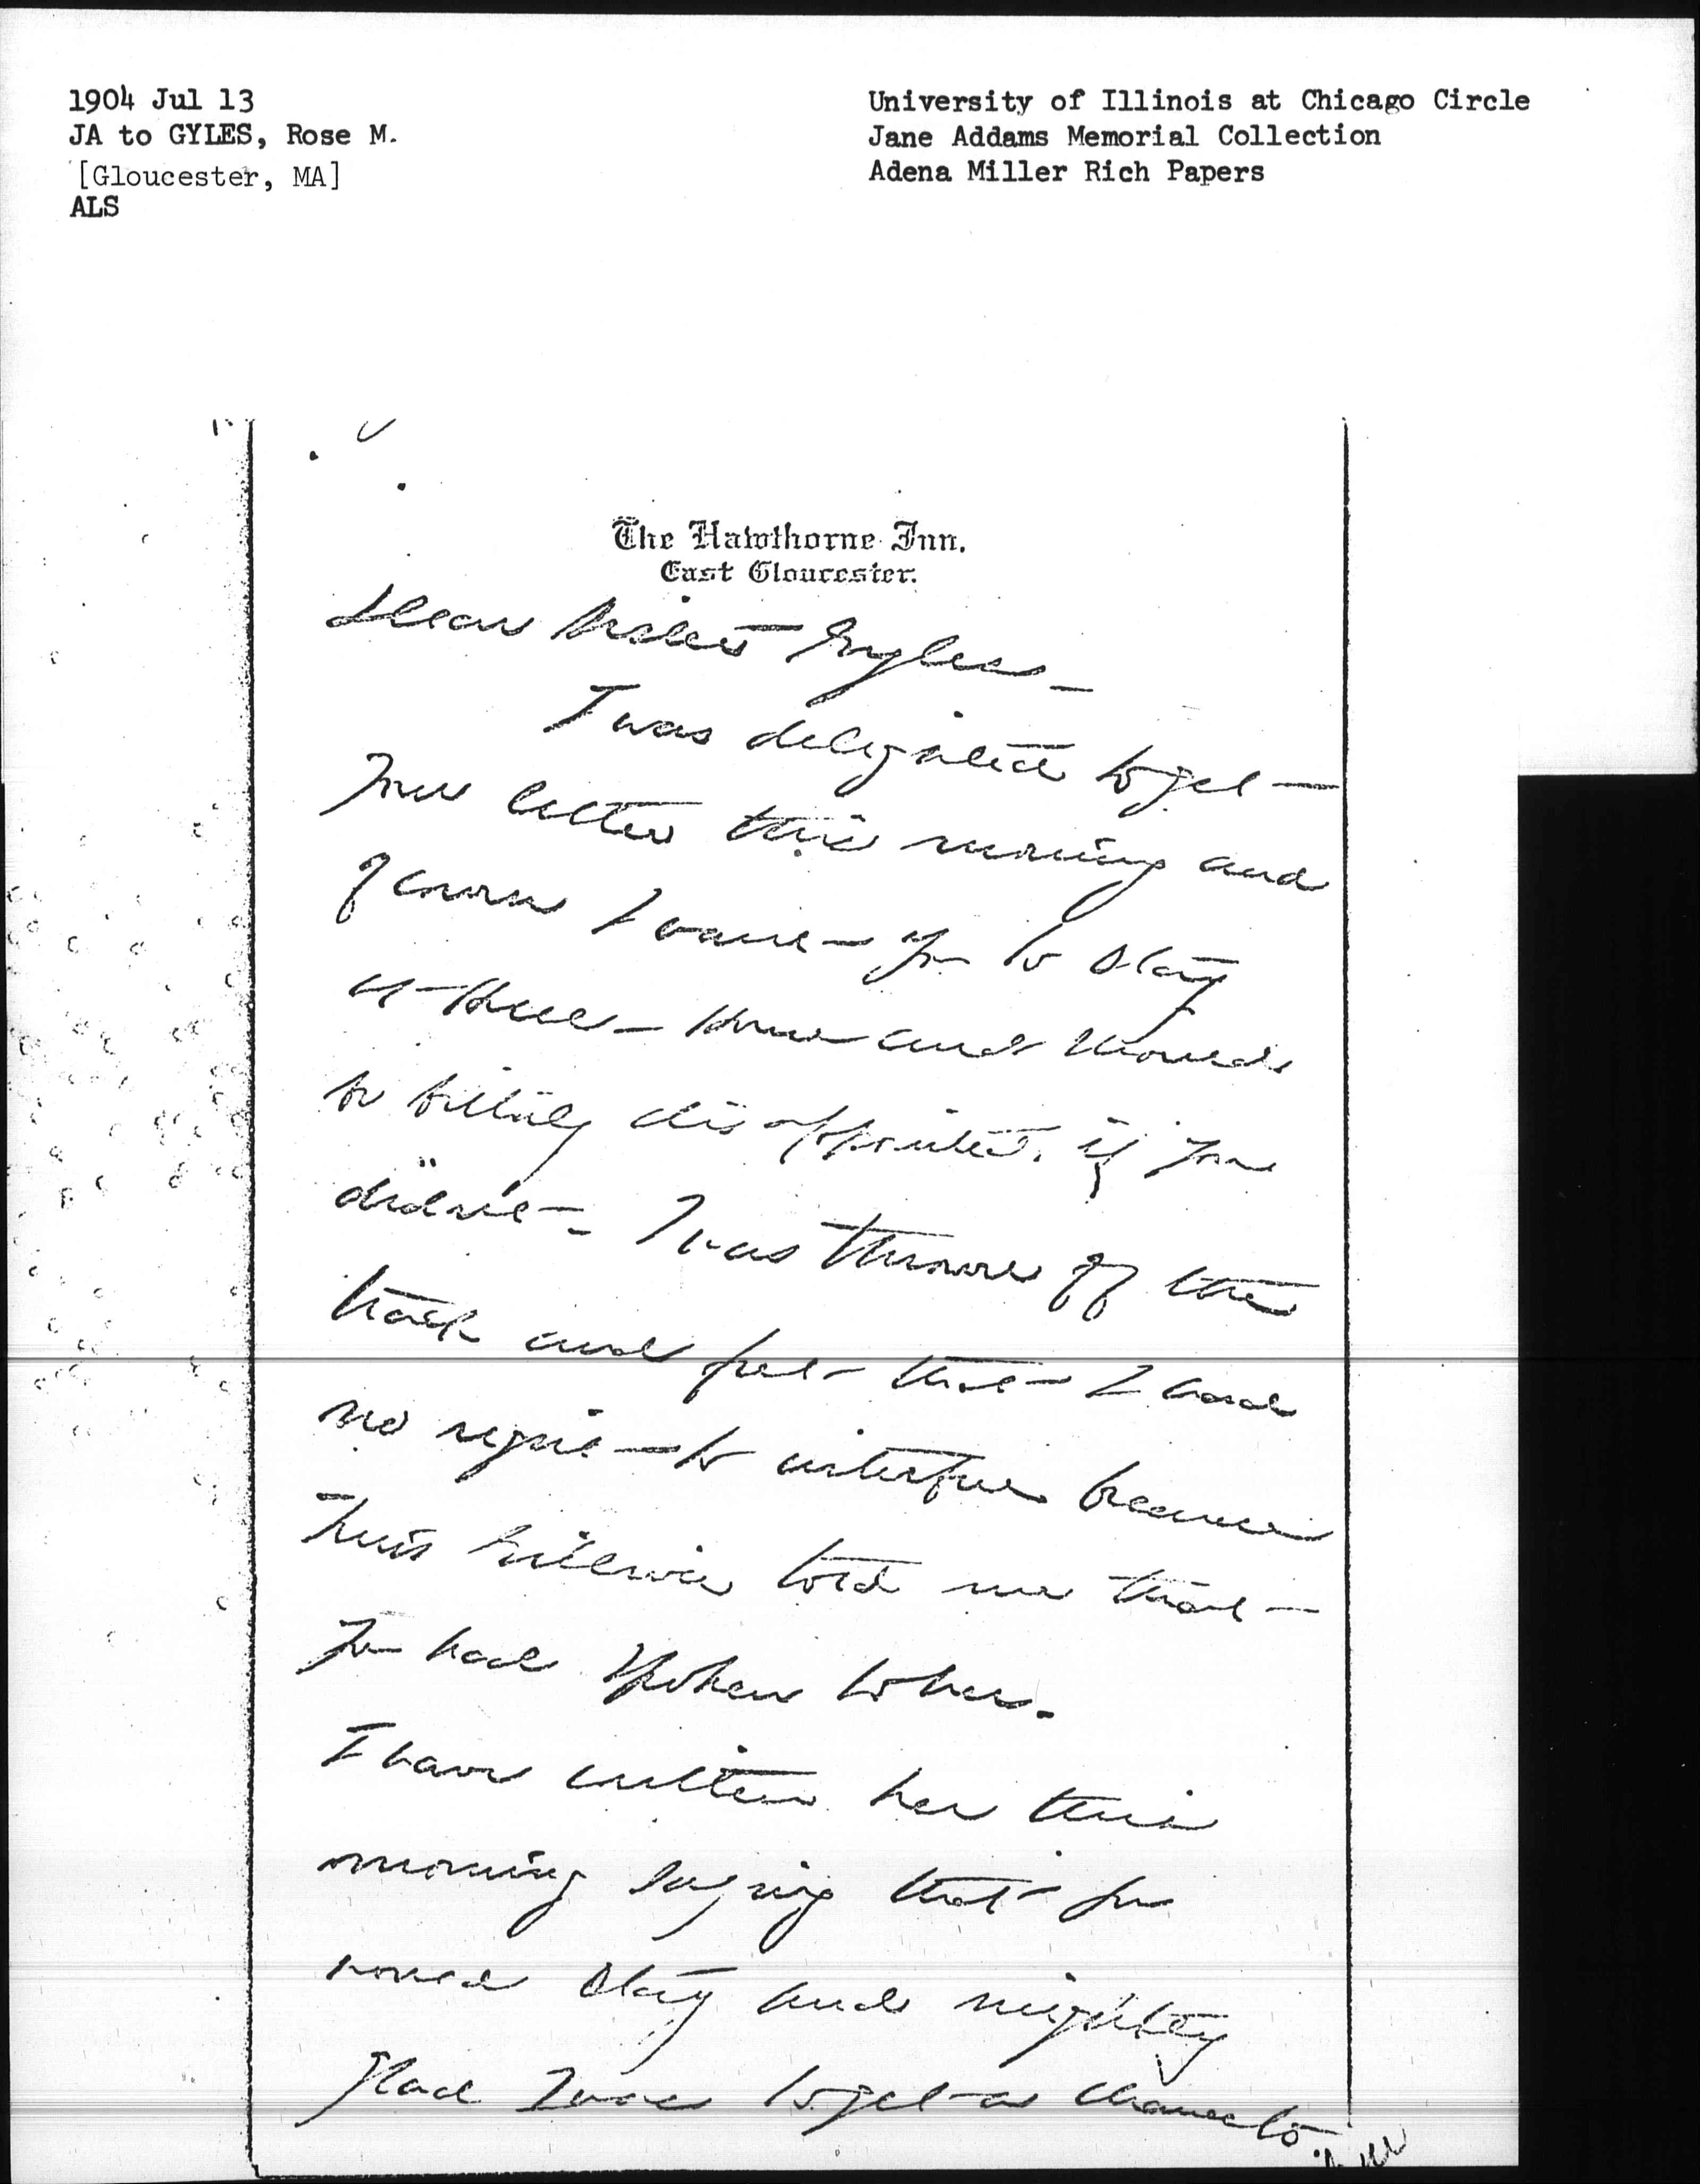 1904 Jul 13
JA to GYLES, Rose M.
[Gloucester, MA]
ALS
University of Illinois at Chicago Circle
Jane Addams Memorial Collection
Adena Miller Rich Papers
The Hawthorne Inn.
East Gloucester.
Dear Gyles—
I was delighted to get
your letter this morning and
of course I want you to stay
at Hull-House and should
be bitterly disappointed, if you
didn't. I was thrown off the
track and felt that I had
no right to interfere because
Miss told me that
you had spoken to her.
I have written her this
morning saying that you
would stay and mighty
glad I was to get a chance to